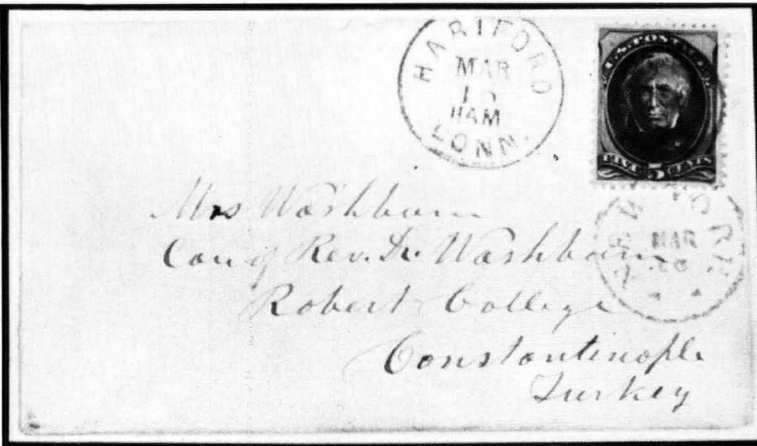 HARTFORD
MAR
11AM
CONN.
U.S. POSTAGE
FIVE 5 CENTS
NEW YORK
MAR
Mrs Washburn
Care of Rev. Dr. Washburn
Robert College
Constantinople
Turkey